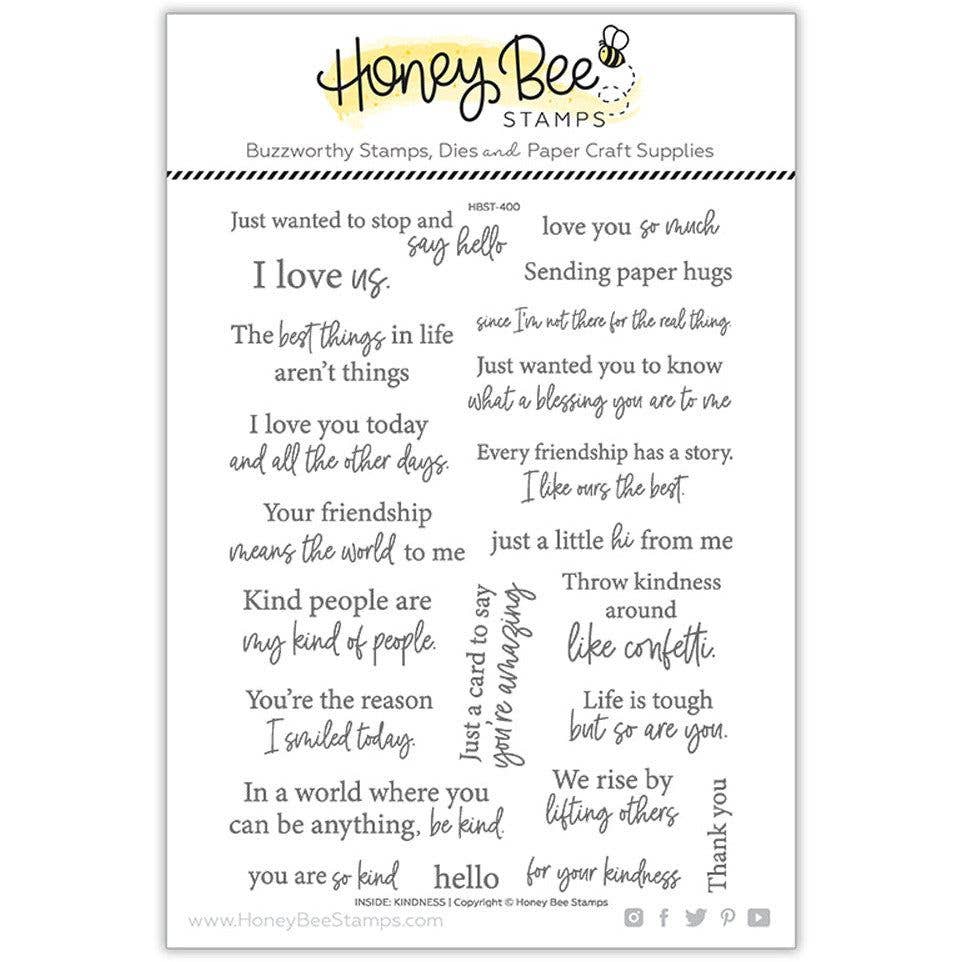 Honey Bee
STAMPS
Buzzworthy Stamps, Dies and Paper Craft Supplies
HBST-400
Just wanted to stop and
say hello
love you so much
I love us.
Sending paper hugs
since I'm not there for the real thing.
The best things in life
aren't things
Just wanted you to know
what a blessing you are to me
I love you today
and all the other days.
Every friendship has a story.
I like ours the best.
Your friendship
means the world to me
just a little hi from me
Kind people are
my kind of people.
Just a card to say
you're amazing
Throw kindness
around
like confetti.
You're the reason
I smiled today.
Life is tough
but so are you.
In a world where you
can be anything, be kind.
We rise by
lifting others
Thank you
you are so kind
hello
for your kindness
INSIDE: KINDNESS | Copyright © Honey Bee Stamps
www.HoneyBeeStamps.com